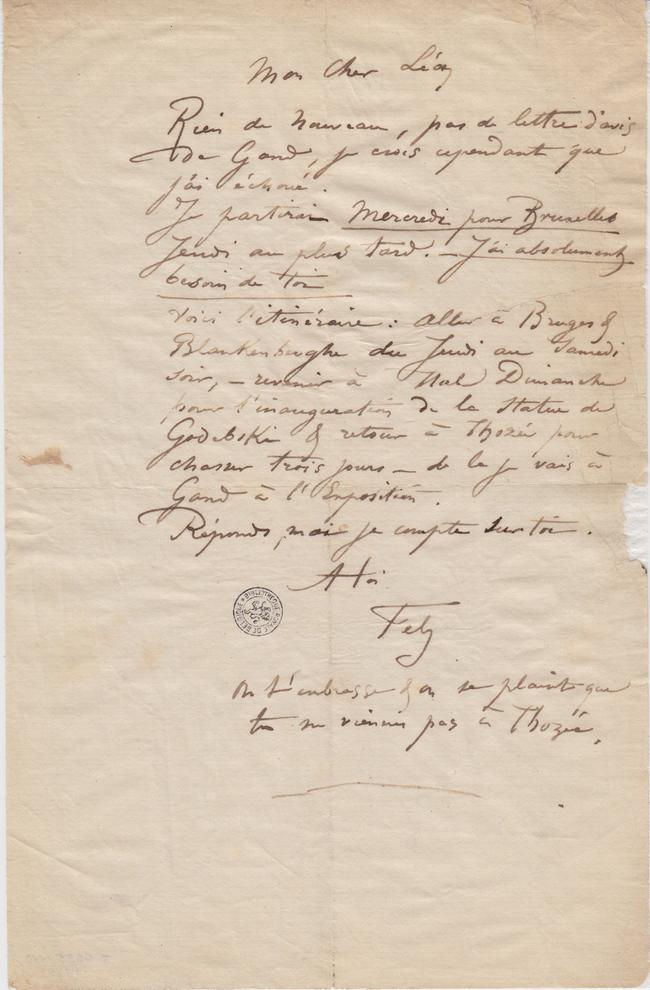 Mon Cher Léon
Rien de nouveau, pas de lettre d'avis
de Gand, je crois cependant que
j'ai échoué.
Je partirai Mercredi pour Bruxelles
Jeudi au plus tard. – J'ai absolument
besoin de toi
Voici l'itinéraire : aller à Bruges &
Blankenberghe du Jeudi au Samedi
soir, – revenir à Hal Dimanche
pour l'inauguration de la statue de
Godebski & retour à Thozée pour
chasser trois jours – de la je vais à
Gand à l'Exposition.
Réponds, moi je compte sur toi.
A toi
Fely
On t'embrasse & on se plaint que
tu ne viennes pas à Thozée.
BIBLIOTHEQUE ROYALE DE BELGIQUE